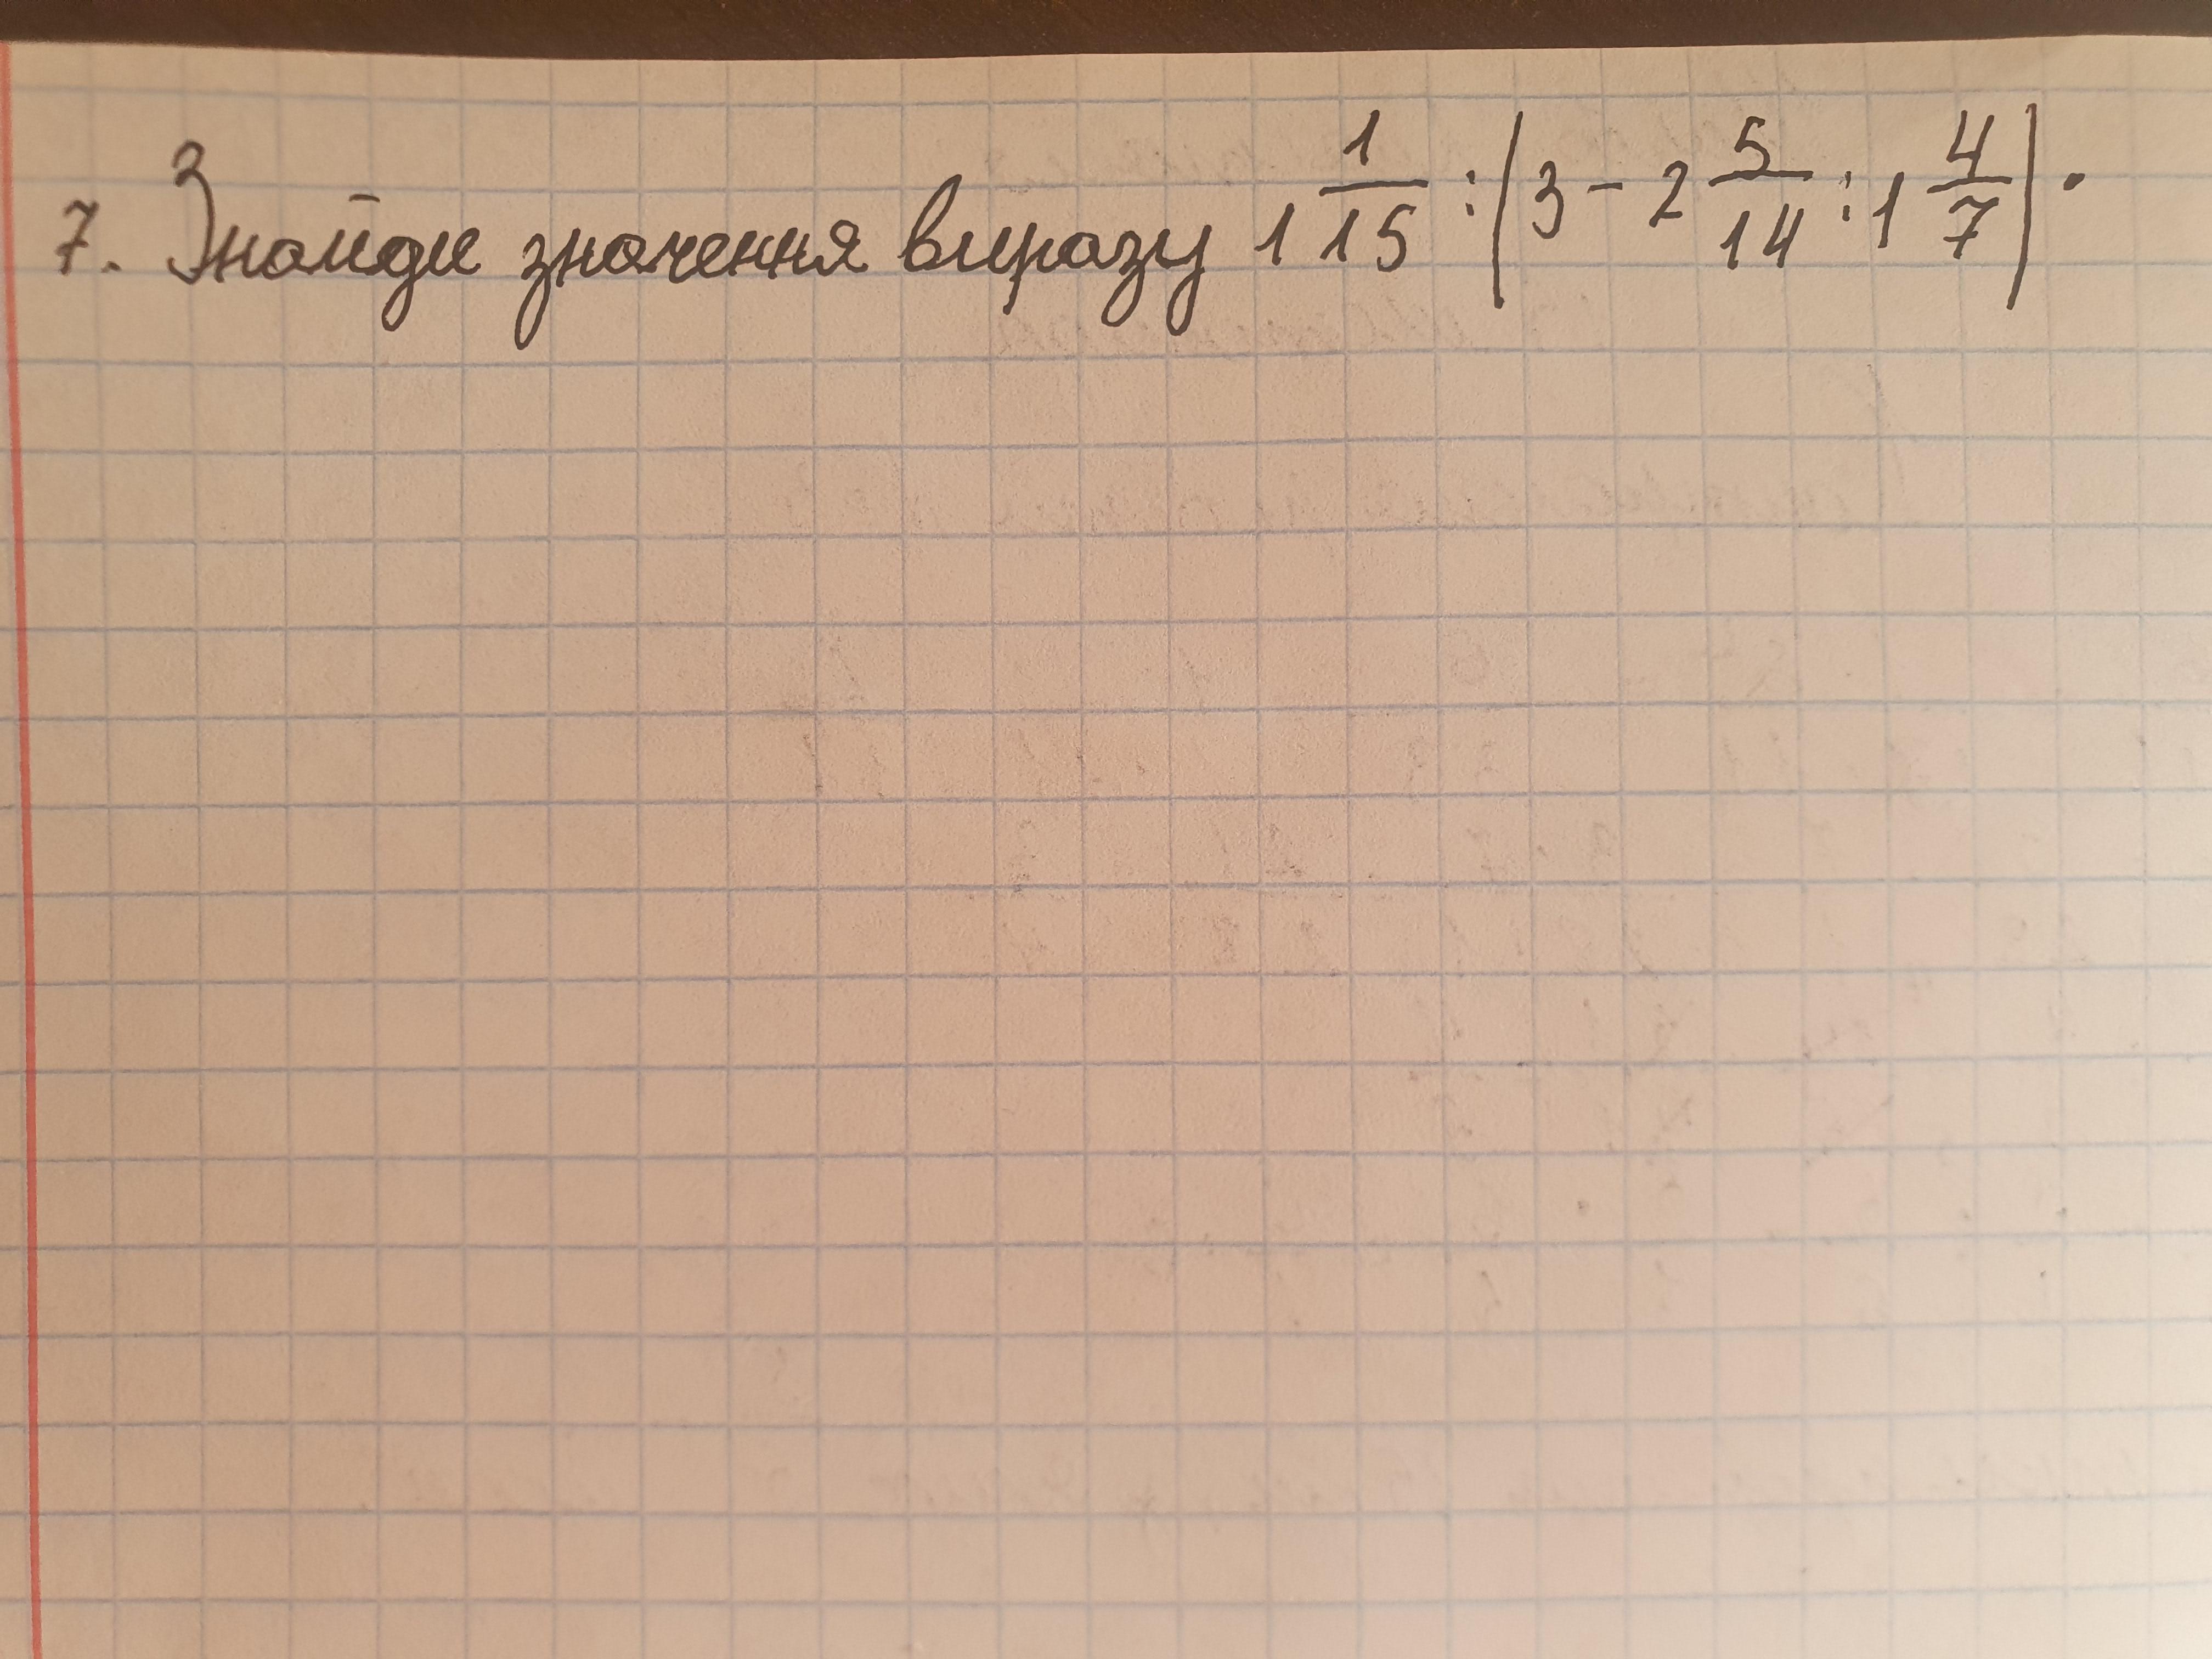 7. Знайди значення виразу 1 1/15 : (3 - 2 5/14 : 1 4/7).